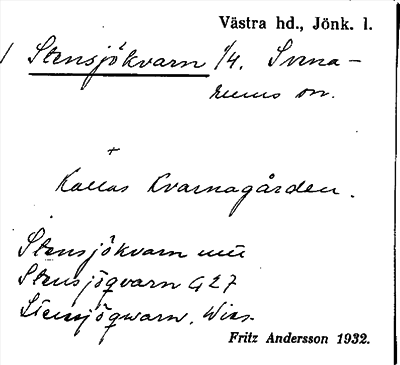 Västra hd., Jönk. l.
Stensjökvarn 1/4. Svena-
rums sn.
Kallas Kvarnagården.
Stensjökvarn
Stensjöqvarn G27
Stensjöqwarn. Wies.
Fritz Andersson 1932.